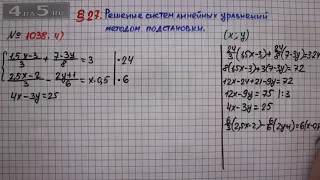 4 ПО 5.RU
§27. Решение систем линейных уравнений
методом подстановки.
№ 1038. 4)
(x; y)
{ (1,5x-3)/3 + (7-3y)/8 = 3 | ·24
(2,5x-2)/3 - (2y+1)/6 = x-0,5 | ·6
4x-3y=25
24/3 (1,5x-3) + 24/8 (7-3y) = 3·24
8(1,5x-3)+3(7-3y)=72
12x-24+21-9y=72
12x-9y=75 |:3
4x-3y=25
6/3 (2,5x-2) - 6/6 (2y+1) = 6(x-0,5)